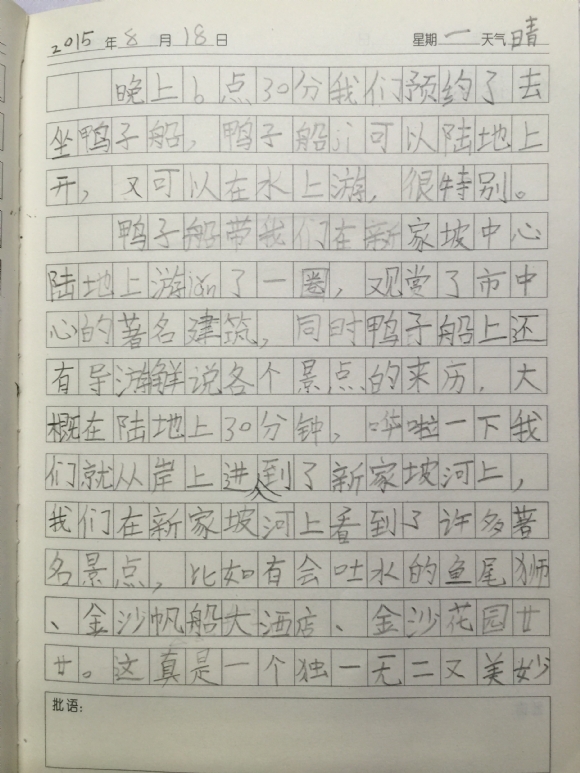 2015年8月18日 星期一 天气晴
晚上6点30分我们预约了去
坐鸭子船，鸭子船ji可以陆地上
开，又可以在水上游，很特别。
鸭子船带我们在新家坡中心
陆地上游lǎn了一圈，观赏了市中
心的著名建筑，同时鸭子船上还
有导游解说各个景点的来历，大
概在陆地上30分钟，哗啦一下我
们就从岸上进入到了新家坡河上，
我们在新家坡河上看到了许多著
名景点，比如有会吐水的鱼尾狮
、金沙帆船大酒店、金沙花园廿
廿。这真是一个独一无二又美妙
批语：